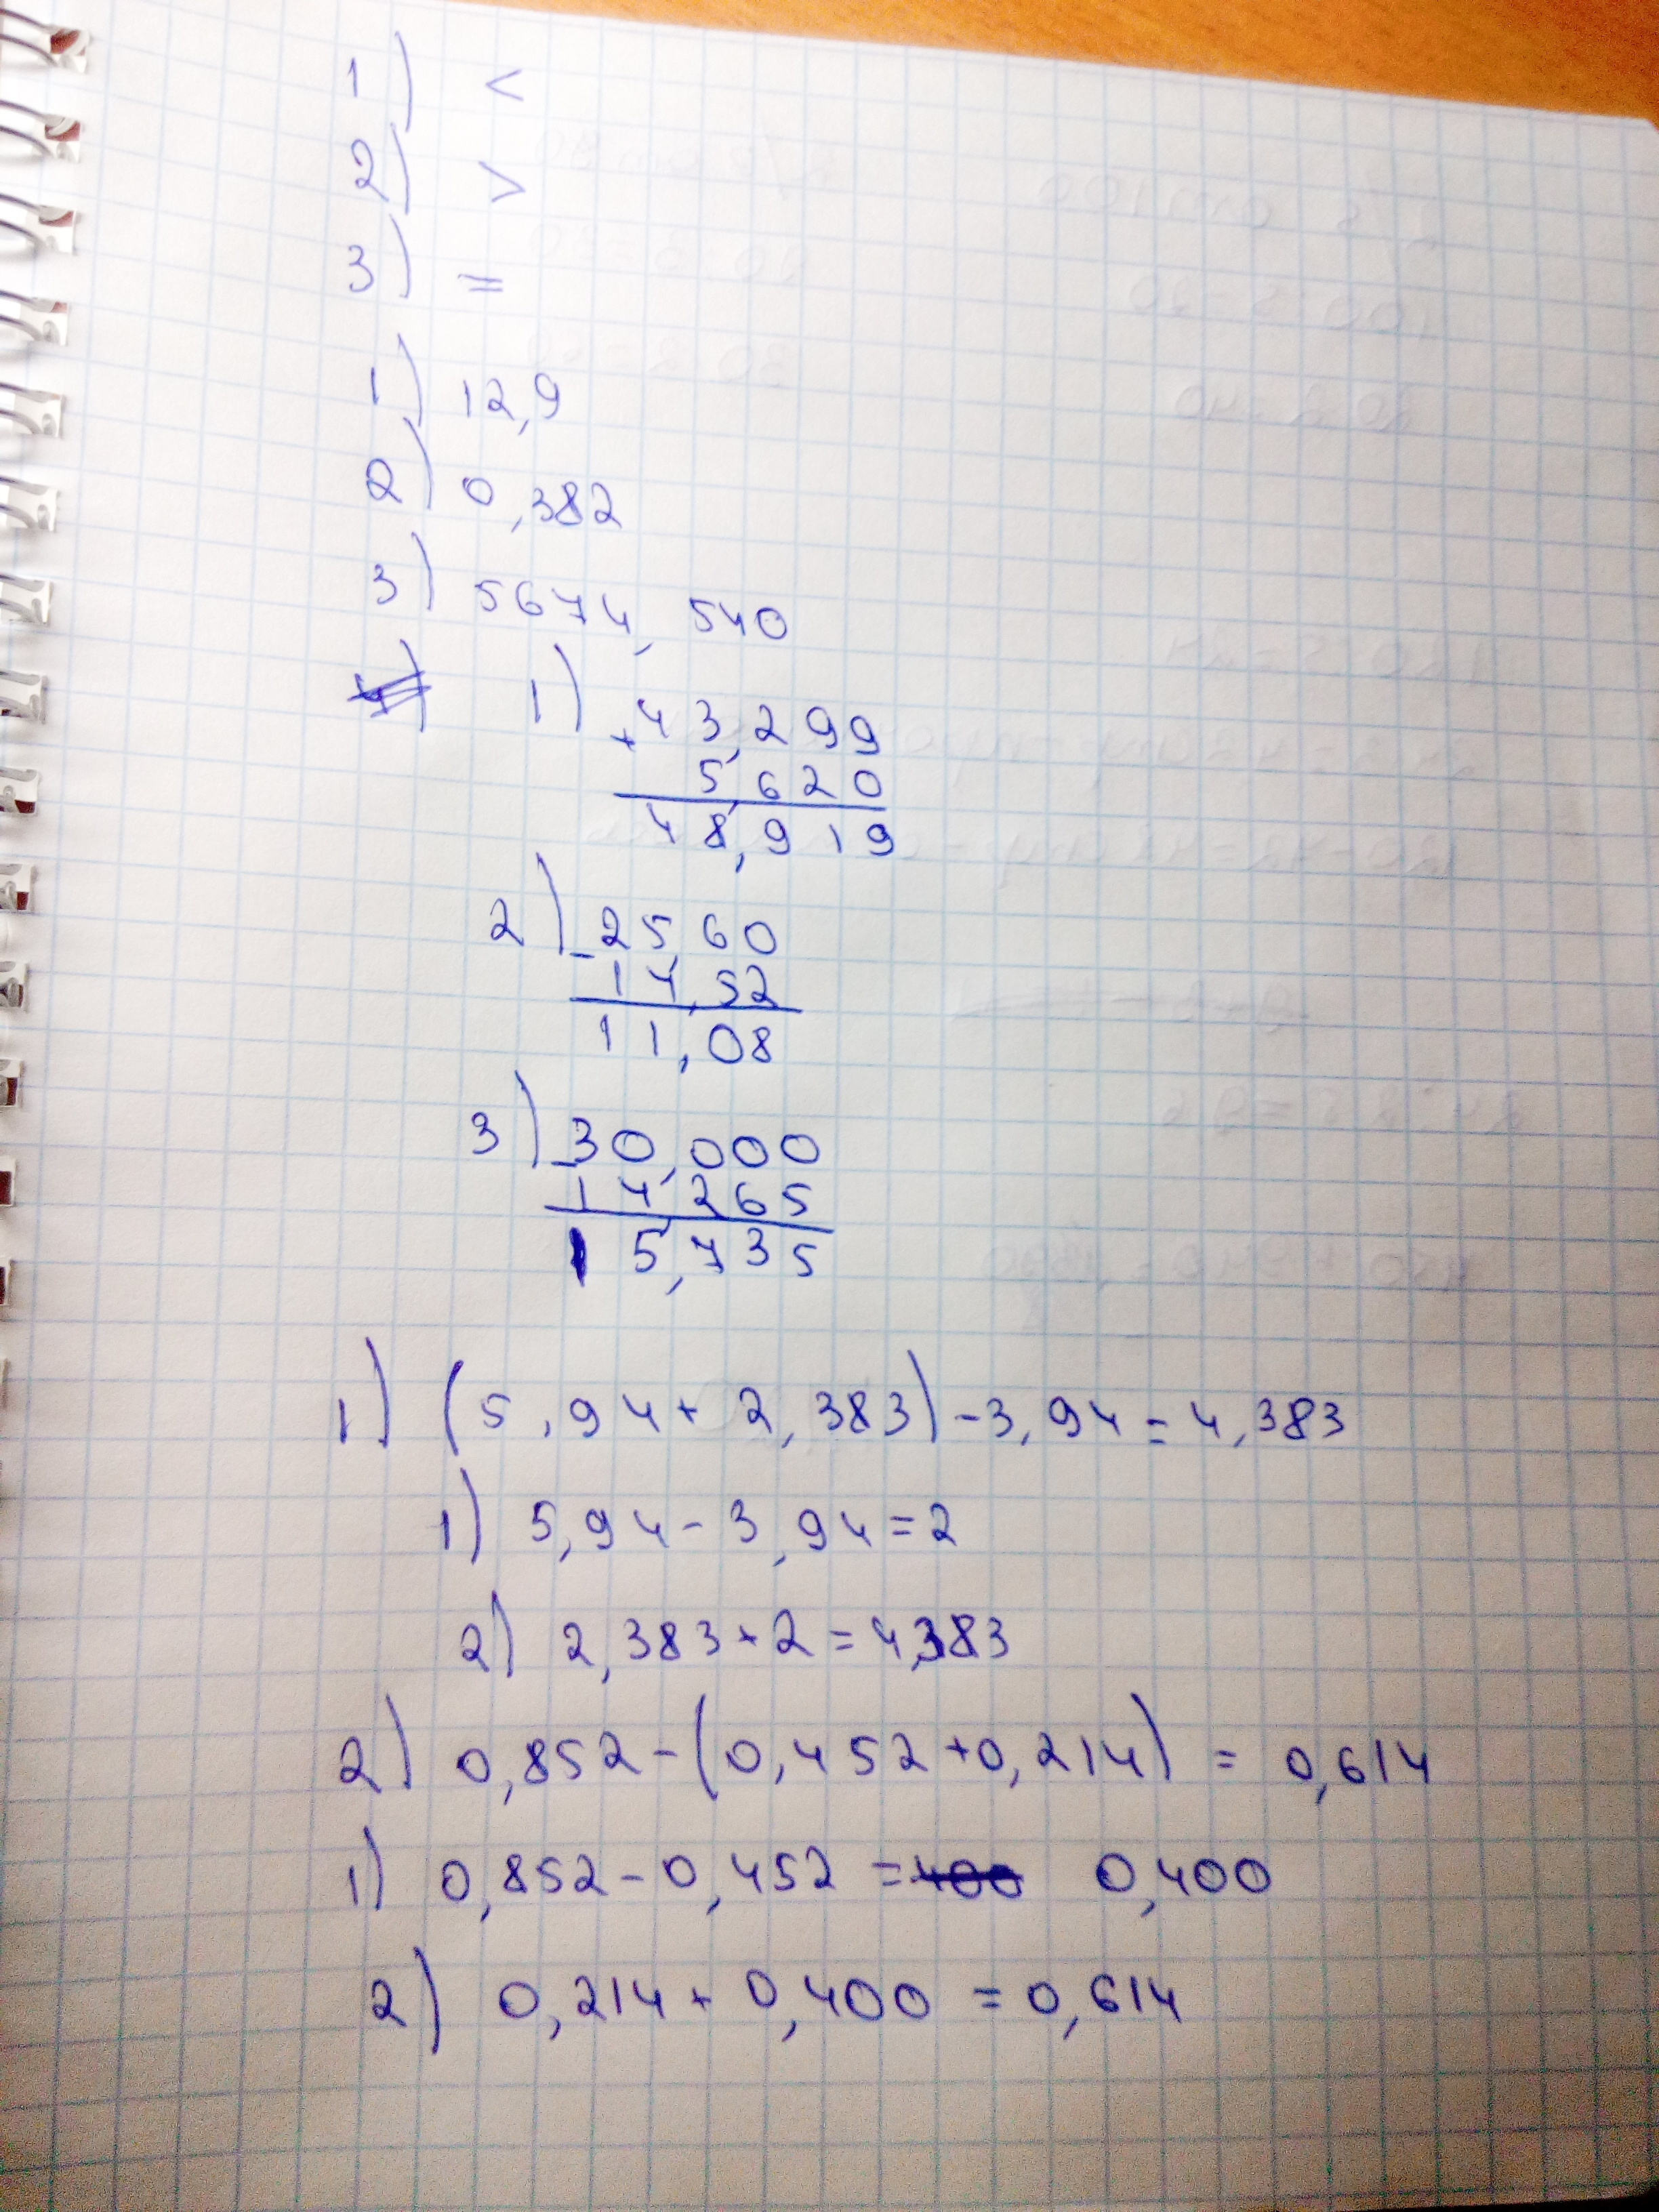 1) <
2) >
3) =
1) 12,9
2) 0,382
3) 5674, 540
1) + 43,299
5,620
48,919
2) - 25,60
14,52
11,08
3) - 30,000
14,265
15,735
1) (5,94 + 2,383) - 3,94 = 4,383
1) 5,94 - 3,94 = 2
2) 2,383 + 2 = 4,383
2) 0,852 - (0,452 + 0,214) = 0,614
1) 0,852 - 0,452 = 400 0,400
2) 0,214 + 0,400 = 0,614